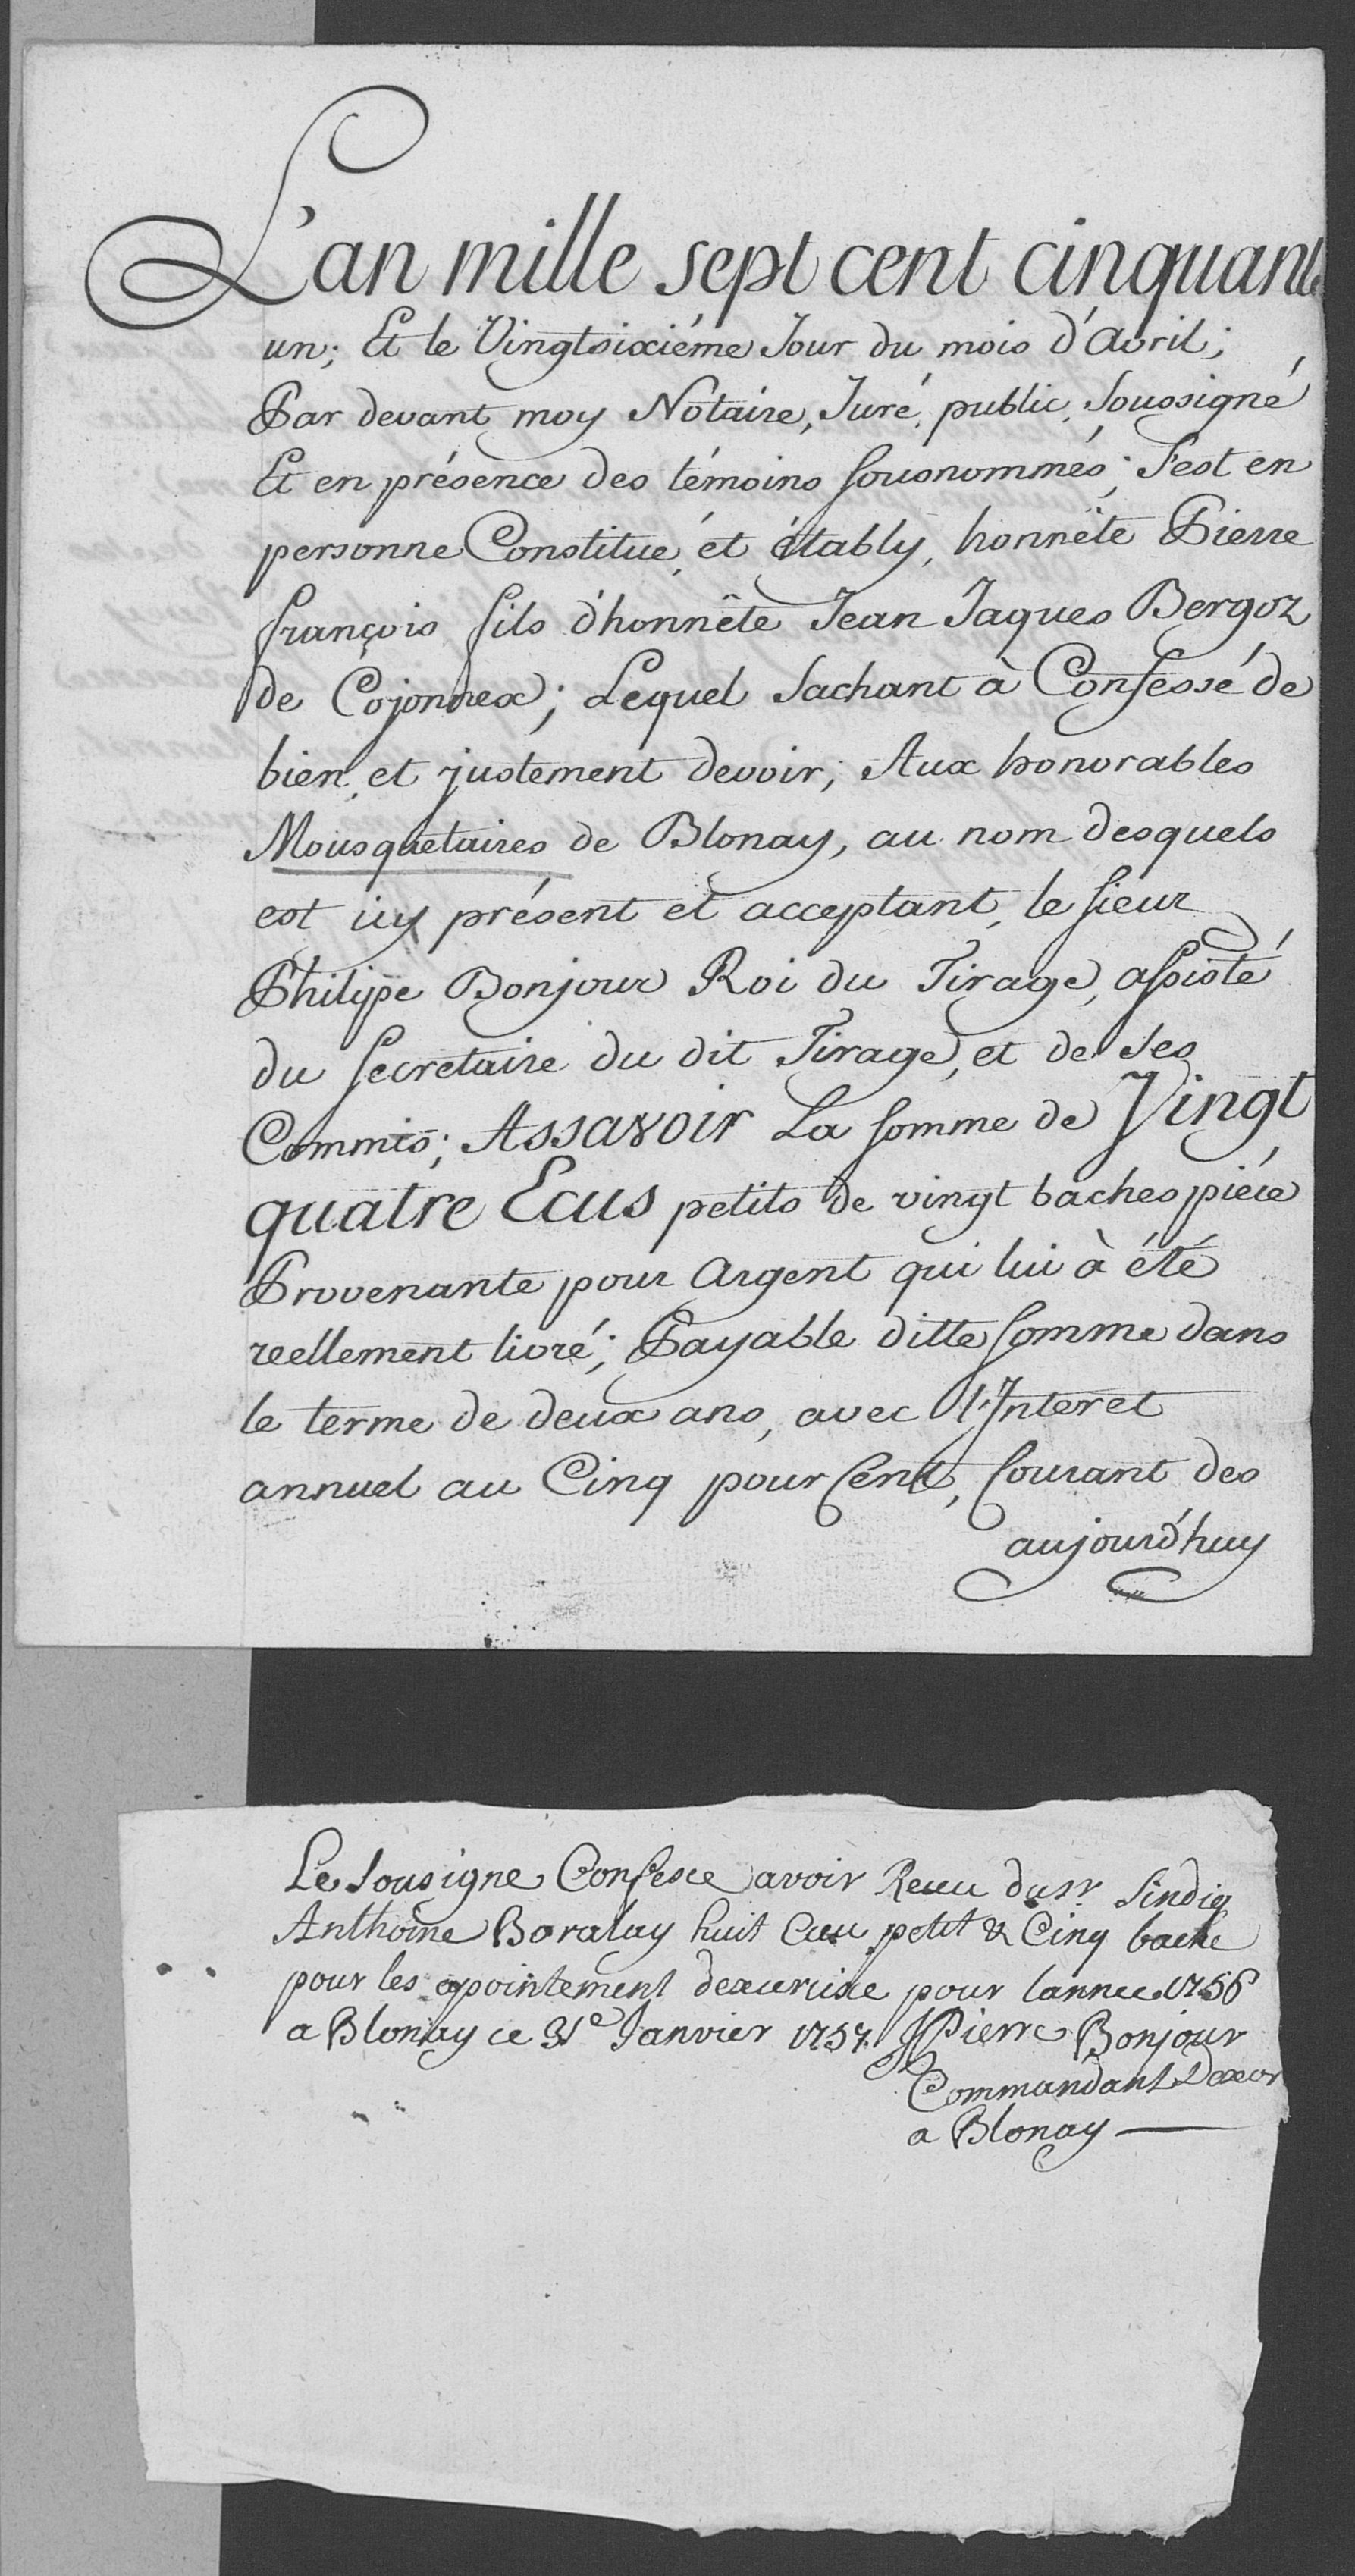 L'an mille sept cent cinquante
un; Et le Vingtsixiéme Jour du mois d'Avril;
Par devant moy Notaire, Juré, public, Soussigné
Et en présence des témoins sousnommés; S'est en
personne Constitué, et étably, honnête Pierre
françois fils d'honnête Jean Jaques Bergoz
de Cojonnex; Lequel Sachant à Confessé de
bien, et justement devoir; Aux honorables
Mousquetaires de Blonay, au nom desquels
est icy présent et acceptant, le sieur
Philipe Bonjour Roi du Tirage, assisté
du secretaire du dit Tirage, et de Ses
Commis; Assavoir La somme de Vingt
quatre Ecus petits de vingt baches piéce
Provenante pour Argent qui lui à été
reellement livré; Payable ditte somme dans
le terme de deux ans, avec l'Interet
annuel au Cinq pour Cent, Courant des
aujourd'huy
Le Sousigne Confesce avoir Receu du sr Sindiq
Anthoine Boralay huit Ecu petit & Cinq bache
pour les apointement dexercise pour lannee 1756
a Blonay ce 31e Janvier 1757. JPierre Bonjour
Commandant Dexer
a Blonay